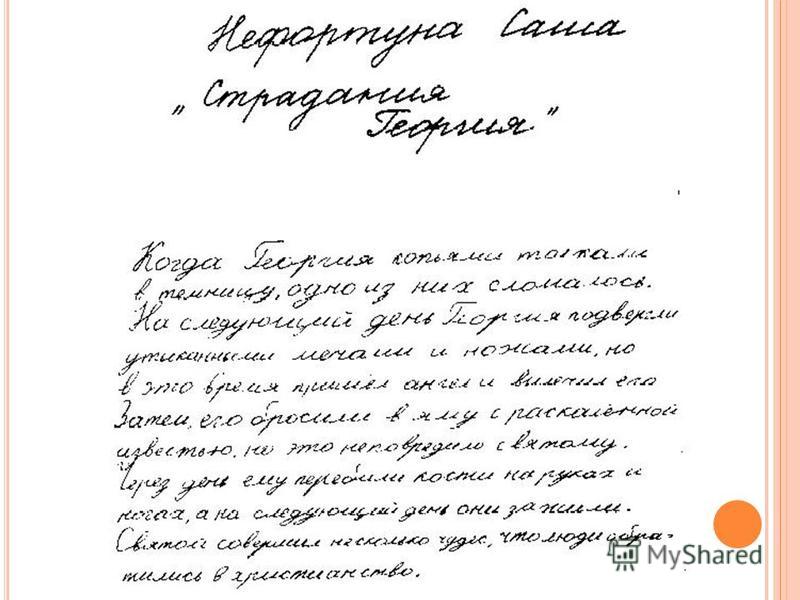 Нефортуна Саша
„Страдания
Георгия"
Когда Георгия копьями толкали
в темницу, одно из них сломалось.
На следующий день Георгия подвергли
утыканными мечами и ножами, но
в это время пришёл ангел и вылечил его
Затем, его бросили в яму с раскалённой
известью, но это неповредило святому.
Через день ему перебили кости на руках и
ногах, а на следующий день они зажили.
Святой совершил несколько чудес, что люди обра-
тились в христианство.
MyShared